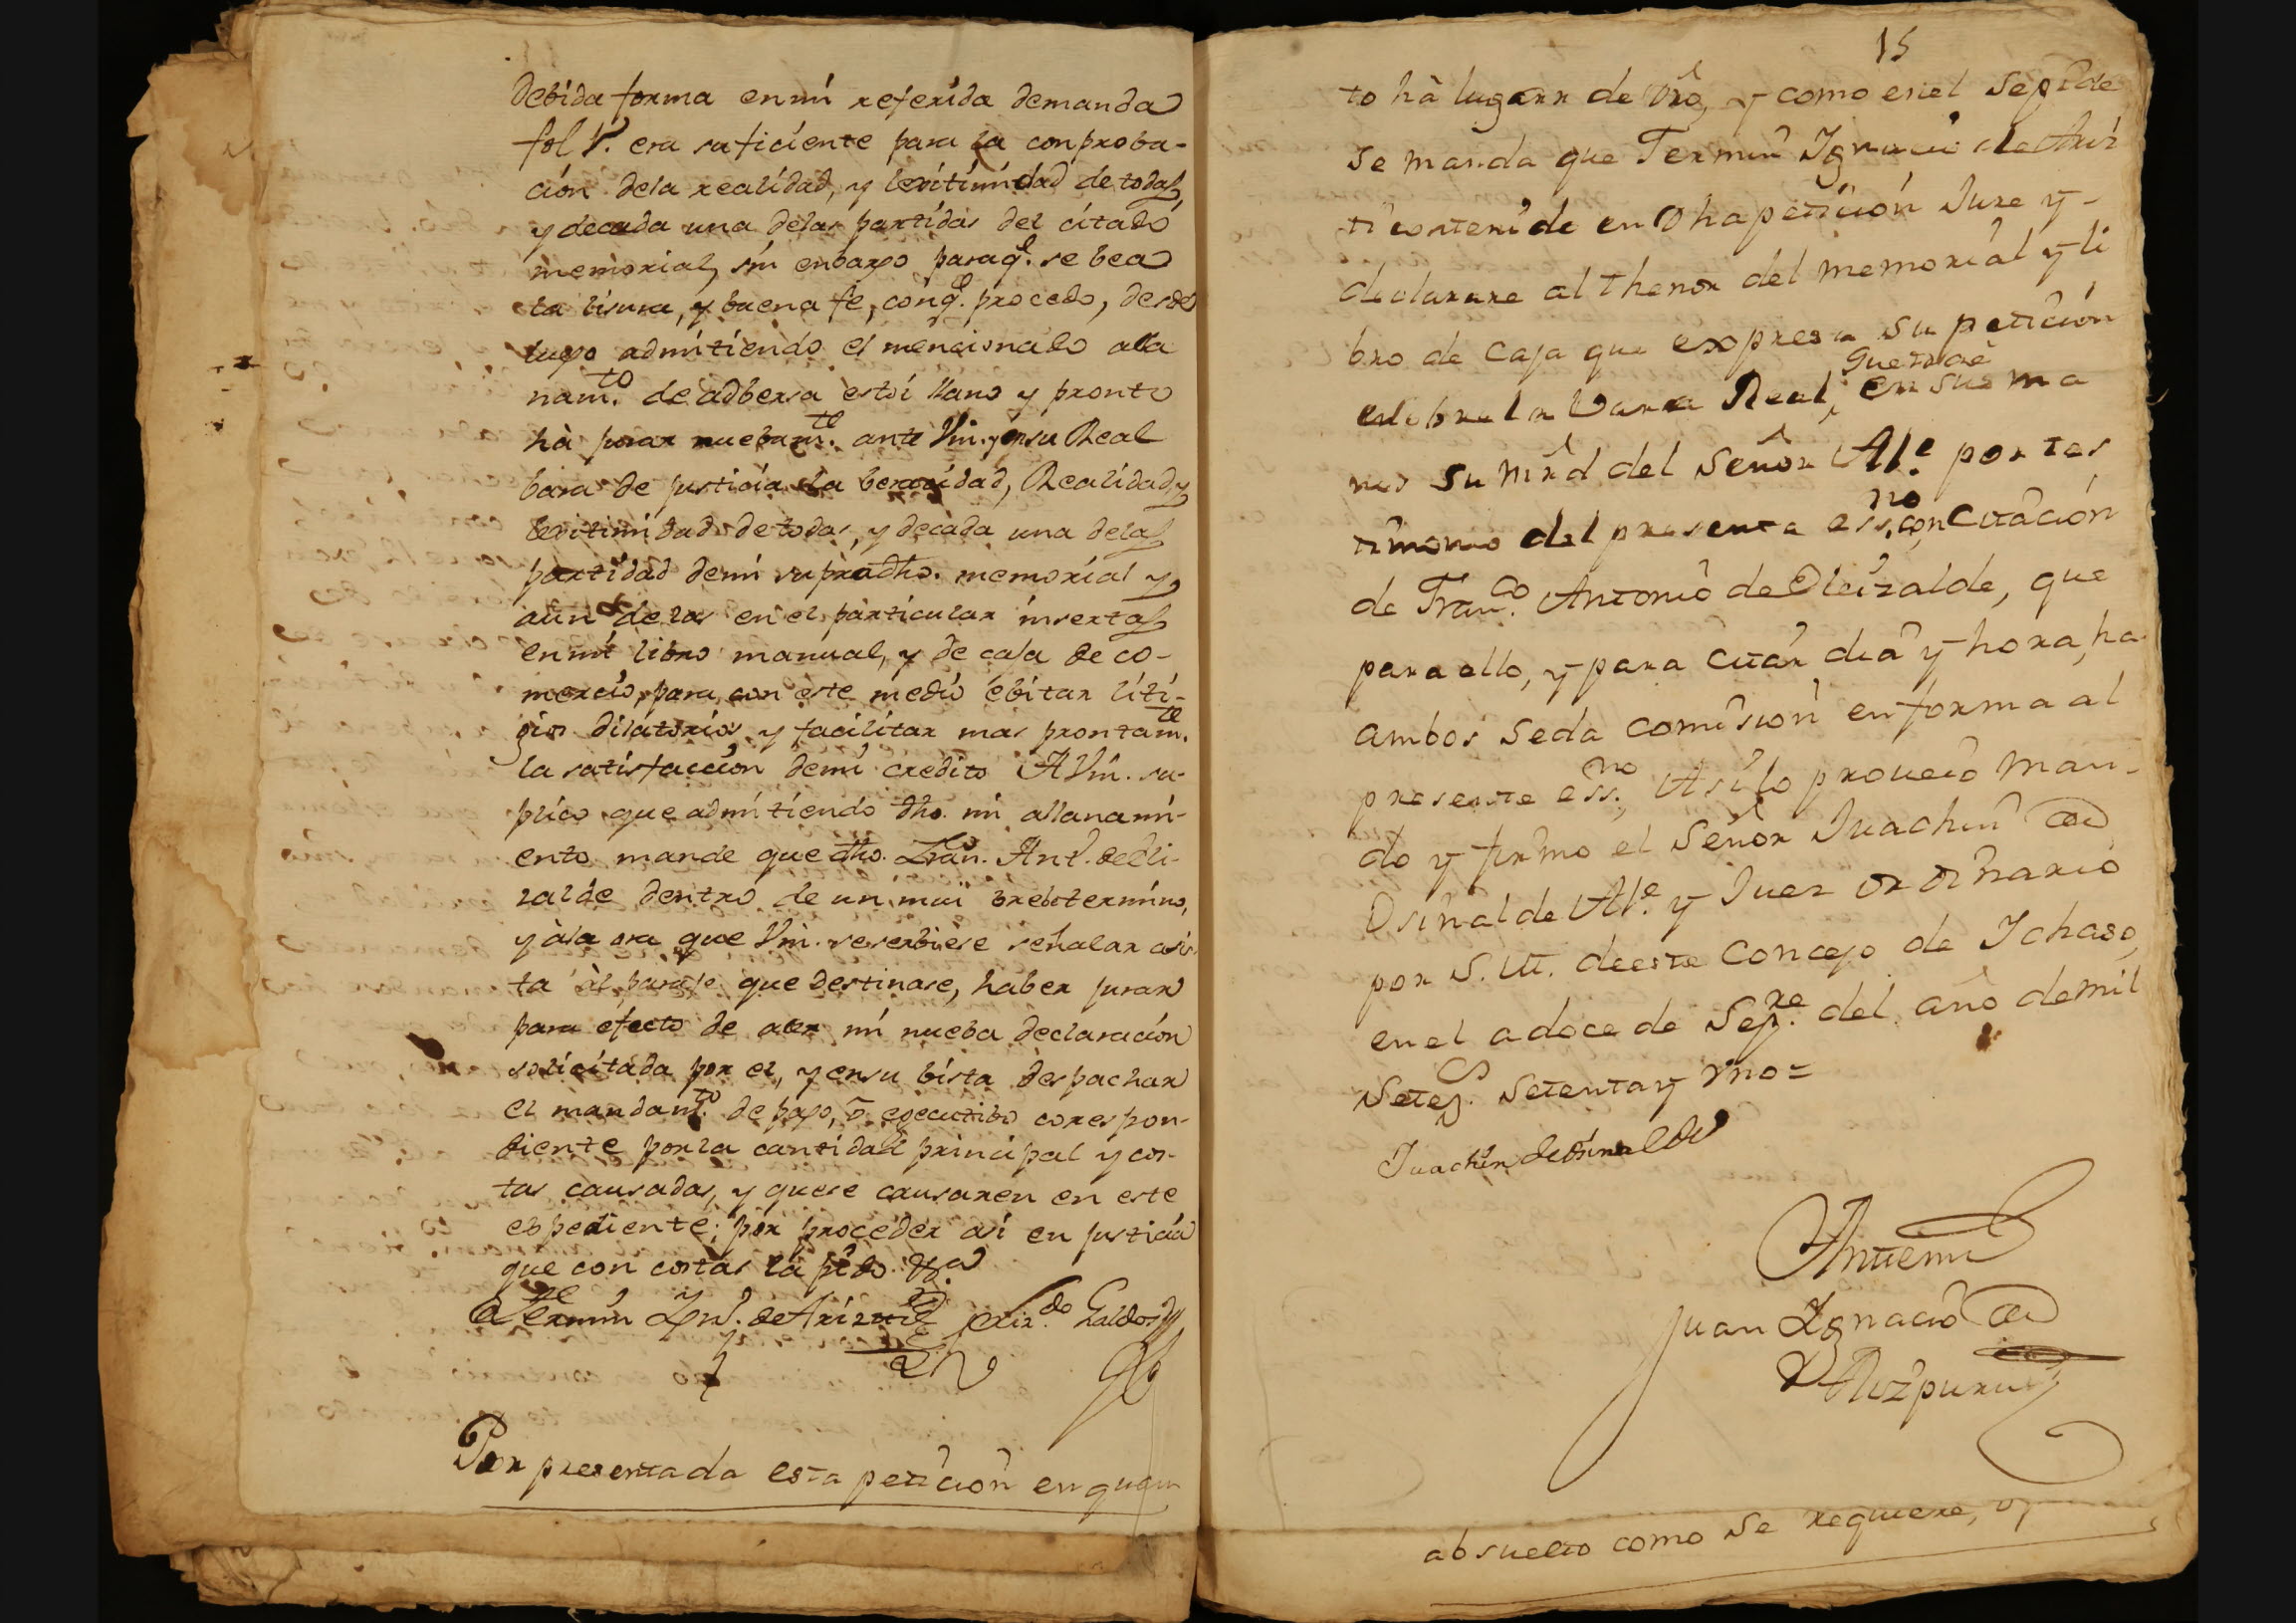 debida forma en mi referida demanda
fol 1º. era suficiente para la conproba-
ción dela realidad, y lexitimidad de todas,
y decada una delas partidas del citado
memorial, sin enbargo paraq.e se bea
la lisura, y buena fe, conq.e procedo, desde
luego admitiendo el mencionado alla
nam.to de adbersa estoi llano y pronto
hà jurar nuebam.te ante Vm. y en su Real
bara de justicia la beracidad, Realidad, y
lexitimidad de todas, y decada una delas
partidad demi supradho. memorial y
aun de las en el particular insertas
en mi libro manual, y de caja de co-
mercio, para con este medio ebitar liti-
gios dilatorios y facilitar mas prontam.te
la satisfacción demi credito A Vm. su-
plico que admitiendo dho. mi allanami-
ento mande que dho. Fran.co Ant.o de Eli-
zalde dentro de un mui brebe termino,
y àla ora que Vm. se serbiese señalar asis-
ta àl paraje que destinare, haber jurar
para efecto de acer mi nueba declaración
solicitada por el, y en su bista despachar
el mandam.to de pago, ò egecutibo corespon-
diente por la cantidad principal y cos-
tas causadas, y quese causaren en este
espediente; por proceder asi en justicia
que con costas la pido &.a
Fermin Ign.o de Ariz Liz.do Galdos
Por presentada esta petición en quan
15
to hà lugarr de dro, y como en el Sepide
se manda que Fermin Ignacio de Ariz
ti contenido en dha petición Jure y-
declarare al thenor del memorial y li
bro de caja que expresa su petición
que trae
en su ma
sobre la Vara Real,
nos su mrd del Señor Al.e por tes
timonio del presente ess.no con citación
de Fran.co Antonio de Eleizalde, que
para ello, y para citar dia y hora, ha
ambos seda comision en forma al
presente ess.no, Asilo proueio man-
do y firmo el Señor Juachin de
Osinalde Al.e y Juez ordinario
por S.M. deeste Concejo de Ichaso,
en el a doce de Sep.re del año demil
Setez.s Setenta y Vno=
Juachin de Osinalde
Antemi
Juan Ignacio de
Aizpuru
absuelto como se requiere,